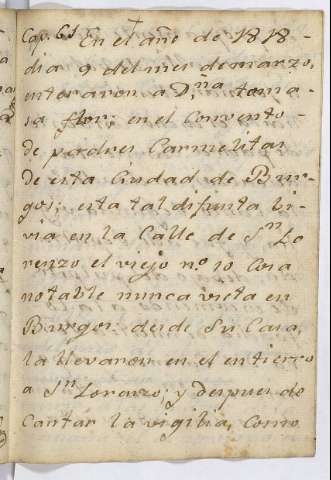 Cap. 61 En el año de 1818 -
dia 9 del mes de marzo,
interaron a D.ña toma -
sa flor; en el Convento -
de padres Carmelitas
de esta Ciudad de Bur -
gos; esta tal difunta bi -
via en la Calle de S.n Lo
renzo el viejo n.º 10 Cosa
notable nunca vista en
Burgos. desde Su Casa,
la llevaron en el entierro
a S.n Lorenzo; y despues de
Cantar la vigilia, Como